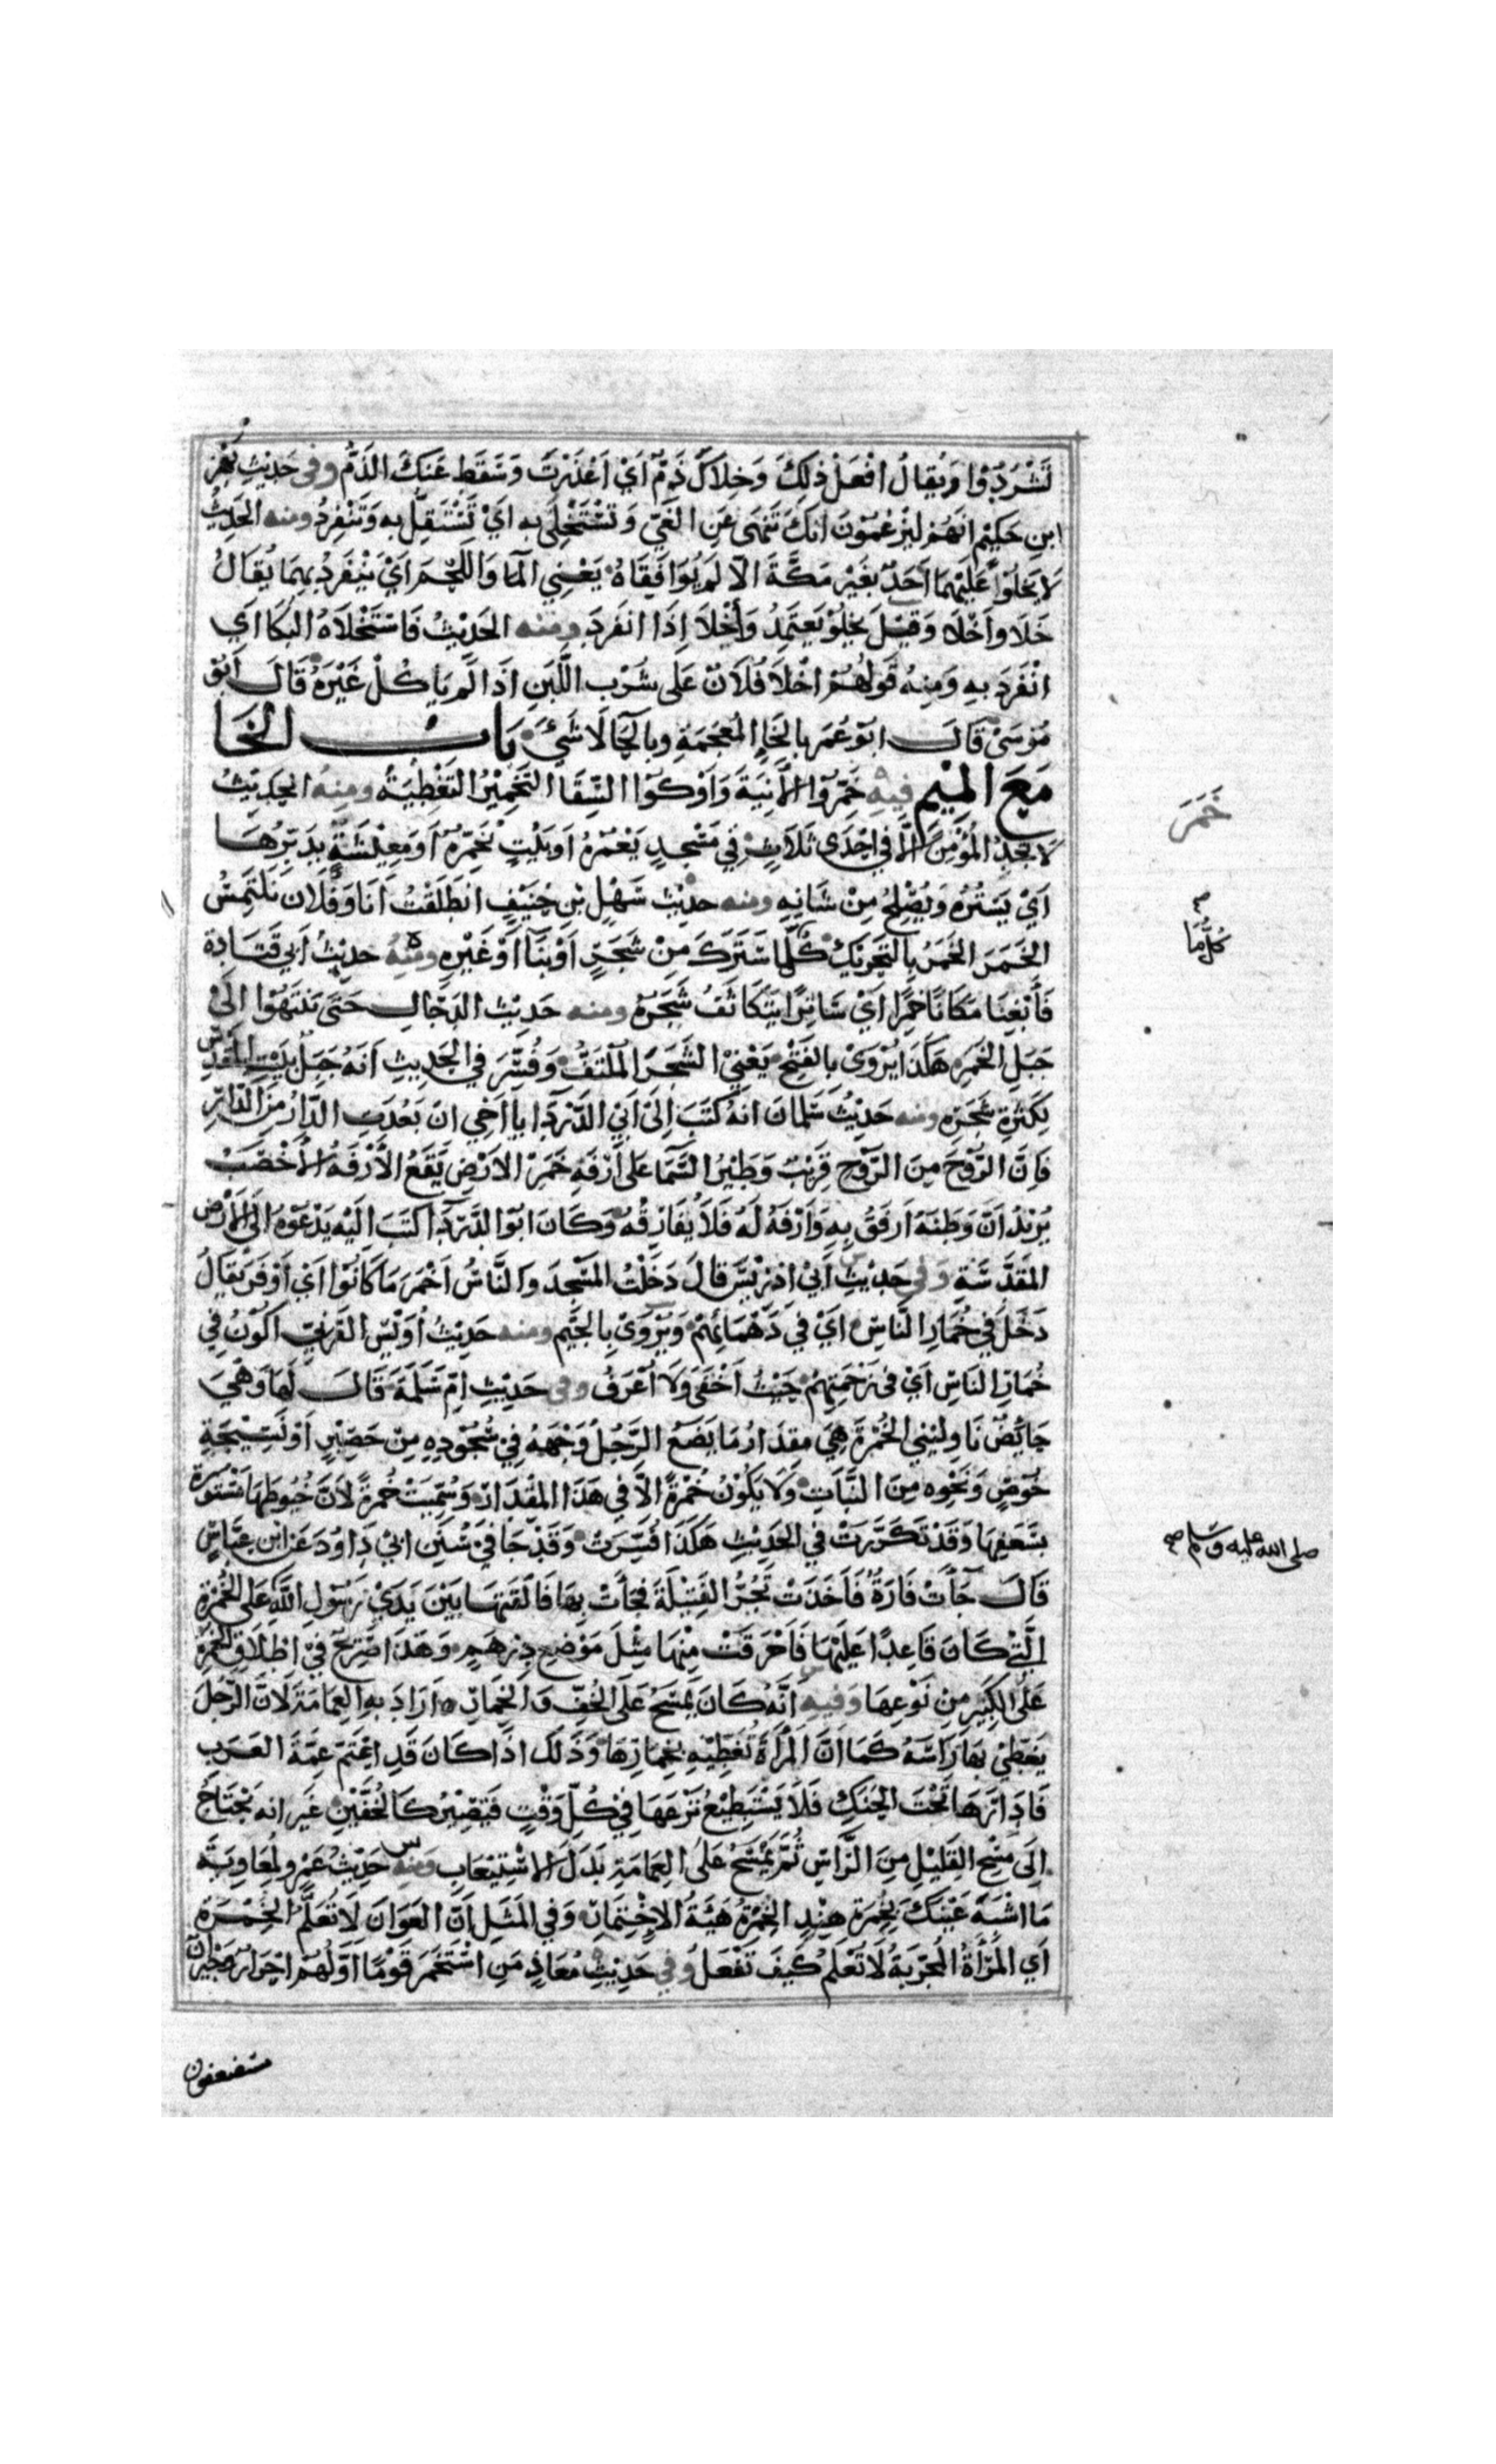 تَشْرُدُوا وَيُقالُ افْعَلْ ذلِكَ وَخِلاَكَ ذَمٌّ اَيْ اَعْذَرْتَ وَسَقَطَ عَنكَ الذَمُّ وفى حَدِيْثِ بَهْزِ
ابنِ حَكِيْمٍ انهُمْ ليَزْعُمُوْنَ انكَ تَنْهَى عَنِ الغَيّ وَتَسْتَخْلِى بِهِ اَيْ تَسْتَقِلُّ بِهِ وَتَنْفَرِدُ ومنه الحَدِيْثُ
لاَ يَخْلُوْا عَلَيْهِمَا اَحَدٌ بغَيْرِ مَكَّةَ الاّ لَمْ يُوَافِقَاهُ يَعْنِي المآ وَاللَّحْمَ اَيْ يَنْفَرِدُ بِهِمَا يُقَالُ
خَلَا واَخْلَا وَقِيْلَ يَخْلُوْ يَعتَمِدُ وَأَخْلاَ اِذَا انفَرَدَ ومنه الحَدِيْثُ فَاسْتَخْلَاهُ البُكَا اَي
انْفَرَدَ بِهِ وَمِنهُ قَولُهُمْ اخْلاَ فُلَانٌ عَلى شُرْبِ اللَّبَنِ اذَا لَم يَاكُلْ غَيْرَهُ قَالَ اَبُوْ
مُوْسَىْ قَالَ ابوْ عُمَرَ بالخَاءِ المُعْجَمَةِ وَبالحَآ لَا شَىْءَ بَابُ الخَا
مَعَ المِيْمِ فيه خَمِّرُوا الأنِيَةَ وَاَوْكُوا السِّقَا التَخْمِيْرُ التَغْطِيَةُ ومِنهُ الحَدِيْثُ
لاَ تَجِدُ المُؤْمِنَ الَّا فِي اِحْدَى ثَلَاثٍ فِي مَسْجِدٍ يَعْمُرُهُ اَو بَيْتٍ يُخَمِّرُهُ اَو مَعِيْشَةٍ يُدَبِّرُهَا
اَيْ يَسْتُرُهُ وَيُصْلِحُ مِنْ شَانِهِ ومنه حدِيْثُ سَهْلِ بْنِ حُنَيْفٍ انطَلَقْتُ أَنَا وَفُلَان نَلتَمِسُ
الخَمَرَ الخَمَرُ بِالتَحْرِيْكِ كُلَّمَا سَتَرَكَ مِنْ شَجَرٍ اَوْ بِنَآ اَوْ غَيْرِهِ ومِنْهُ حدِيْثُ أَبِي قَتَادَة
فَأَبْغِنَا مَكَانًا خَمِرًا اَيْ سَاتِرًا يَتَكَاثَفُ شَجَرُهُ ومنه حَدِيْثُ الدَجّالِ حَتَى تَنْتَهُوْا الَىْ
جَبَلِ الخَمَرِ هَكَذَا يُرْوَىْ بالفَتْحِ يَعْنِيْ الشَجَرَ المُلْتَفَّ وَفُسِّرَ فِي الحَدِيثِ اَنَهُ جَبَلُ بَيْتِ المَقْدِسِ
لِكَثْرَةِ شَجَرِهِ ومنه حَدِيْثُ سَلْمَانَ انَهُ كَتَبَ اِلَىْ اَبِي الدَّرْدَآ يا اَخِي انْ بَعُدَتِ الدَّارُ مِنَ الدَّارِ
فَاِنَّ الرُّوْحَ مِنَ الرُّوْحِ قَرِيْبٌ وَطَيْرُ السَّمَآ عَلَى اَرْفَهِ خَمَرِ الاَرْضِ يَقَعُ الأَرْفَهُ الأَخْصَبُ
يُرِيْدُ اَنَّ وَطَنَهُ اَرفَقُ بِهِ وَاَرْفَهُ لَهُ فَلاَ يُفَارِقُهُ وَكَانَ ابُوْ الدَّرْدَآ كَتَبَ الَيْهِ يَدْعُوْهُ اِلَى الاَرْضِ
المُقَدَّسَةِ وَفِي حَدِيْثِ اَبِيْ اِدْرِيْسَ قالَ دَخَلْتُ المَسْجِدَ وَالنَّاسُ اَخْمَرَ مَا كَانُوْا اَيْ اَوْفَرَ يُقَالُ
دَخَلَ فِي خُمَارِ النَّاسِ اَيْ فِي دَهْمَائِهِمْ وَيُرْوَىْ بِالجِيْمِ ومنه حَدِيْثُ اُوَيْسٍ القَرَنِيّ اَكُوْنُ فِي
خُمَارِ النَاسِ اَيْ فى زَحْمَتِهِمْ حَيْثُ اَخْفَى وَلاَ اُعْرَفُ وفى حَدِيْثِ اُمِّ سَلَمَةَ قَالَ لَهَا وَهْيَ
حَائِضٌ نَاوِلِيْنِي الخُمْرَةَ هِيَ مِقدَارُ مَا يَضَعُ الرَّجُلُ وَجْهَهُ فِيْ سُجُوْدِهِ مِنْ حَصِيْرٍ اَوْ نَسِيْجَةِ
خُوْصٍ وَنَحْوِه مِنَ النَّبَاتِ وَلَا يَكُوْنُ خُمْرَةً الَّا فِي هَذَا المِقْدَارِ وَسُمِّيَتْ خُمْرَةً لأَنَّ خُيُوطَهَا مَسْتُوْرَة
بِسَعَفِهَا وَقَدْ تَكَرَّرَتْ فِي الحَدِيْثِ هَكَذَا فُسِّرَتْ وَقَدْ جَا فِيْ سُنَنِ ابِيْ دَاوُدَ عَنِ ابْنِ عَبَّاسٍ
قَالَ جَآتْ فَارَةٌ فَاَخَذَتْ تَجُرُّ الفَتِيْلَةَ فَجَأتْ بِهَا فَالقَتْهَا بَيْنَ يَدَيْ رَسُوْلِ اللَّهِ عَلَى الخُمْرَةِ
الَّتِيْ كَانَ قَاعِدًا عَلَيْهَا فَاَحْرَقَتْ مِنْهَا مِثْلَ مَوْضِعِ دِرْهَمٍ وَهَذَا صَرِيْحٌ فِيْ اطْلَاقِ الخُمْرَةِ
عَلَى الكَبِيْرِ مِنْ نَوْعِهَا وَفيهِ اَنَّهُ كَانَ يَمْسَحُ عَلَى الخُفِّ وَالخِمَارِ اَرَادَ بِهِ العِمَامَةَ لاَنَّ الرَّجُلَ
يُغَطِّيْ بِهَا رَاسَهُ كَمَا اَنَّ المَرْأَةَ تُغَطِّيْهِ بِخِمَارِهَا وَذَلكَ اذَا كَانَ قَدِ اعْتَمَّ عِمَّةَ العَرَبِ
فَادَارَهَا تَحْتَ الحَنَكِ فَلَا يَسْتَطِيْعُ نَزْعَهَا فِيْ كُلِّ وَقْتٍ فَتَصِيْرُ كَالخُفَّيْنِ غَيرَ انه يَحْتَاجُ
اِلَى مَسْحِ القَلِيْلِ مِنَ الرَّاسِ ثُمَّ يَمْسَحُ عَلَى العِمَامَةِ بَدَلَ الاسْتِيْعَابِ ومنه حَدِيْثُ عَمْرٍو لِمُعَاوِيَةَ
مَا اشْبَهَ عَيْنَكَ بِخِمْرَةِ هِنْدٍ الخِمْرَةُ هَيْئَةُ الاِخْتِمَارِ وَفِي المَثَلِ اَنَّ العَوَانَ لَا تُعَلَّمُ الخِمْرَةَ
اَيِ المَرْأَةُ المُجَرِّبَةُ لَا تُعَلَّمُ كَيفَ تَفْعَلُ وَفِي حَدِيْثِ مُعَاذٍ مَنِ اسْتَخْمَرَ قَوْمًا اَوَّلُهُمْ احْرَارٌ وَجِيْرَانٌ
مستضعفون
خَمَرَ
كُلُّ مَا
صلى الله عليه وسلم صح